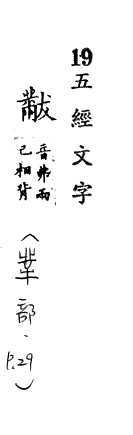 19
五經文字
黻
音弗兩
己相背
(黹部、P.29)